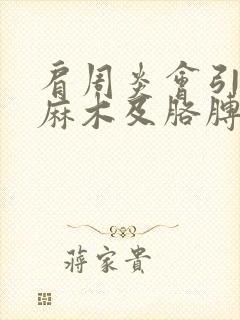 肩周炎會引
麻木及胳膊
蔣家貴